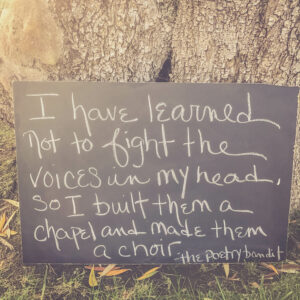 I have learned
not to fight the
voices in my head,
so I built them a
chapel and made them
a choir -the poetry bandit